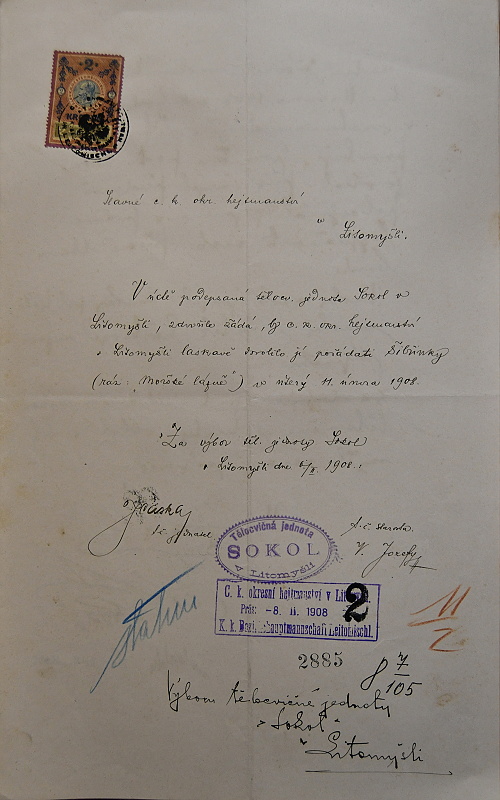 2
Slavné c. k. okr. hejtmanství
v
Litomyšli.
V úctě podepsaná tělocv. jednota Sokol v
Litomyšli, zdvořile žádá, by c. k. okr. hejtmanství
v Litomyšli laskavě dovolilo jí pořádati Šibřinky
(ráz: Mořské lázně) v úterý 11. února 1908.
Za výbor těl. jednoty Sokol
v Litomyšli dne 1908.
t. č. jednatel
t. č. starosta
Tělocvičná jednota
SOKOL
v Litomyšli
C. k. okresní hejtmanství v Litomyšli
Präs: -8. II. 1908
2
K. k. Bezirkshauptmannschaft Leitomischl.
11
2
2885
7
105
Výboru tělocvičné jednoty
„Sokol“
v Litomyšli